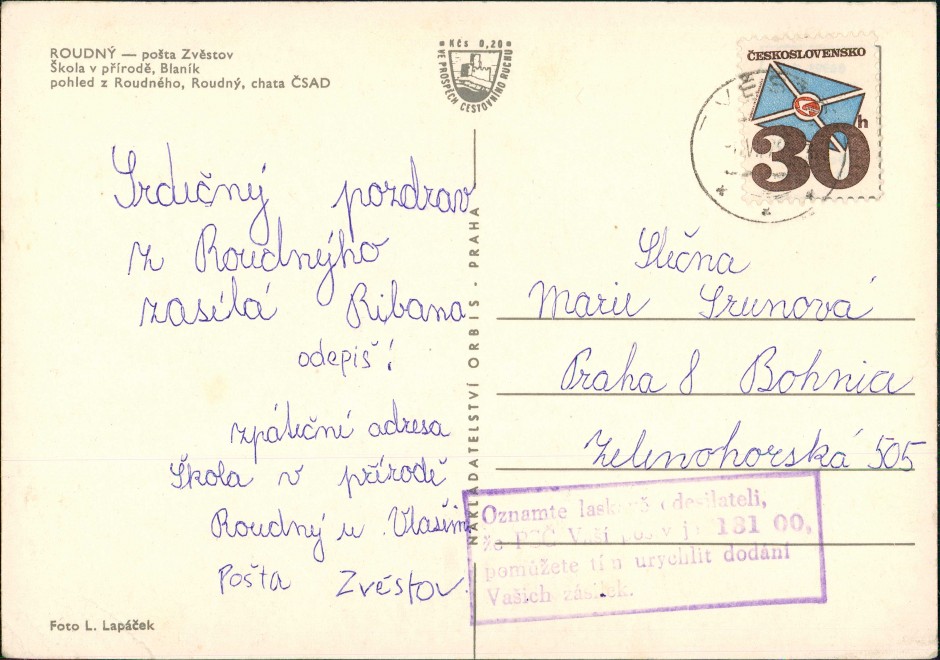 ROUDNÝ — pošta Zvěstov
Škola v přírodě, Blaník
pohled z Roudného, Roudný, chata ČSAD
Kčs 0,20
VE PROSPĚCH CESTOVNÍHO RUCHU
ČESKOSLOVENSKO
30h
Srdečný pozdrav
z Roudnýho
zasílá Ribana
odepiš!
zpáteční adresa
Škola v přírodě
Roudný u Vlašim
Pošta Zvěstov
Foto L. Lapáček
NAKLADATELSTVÍ ORBIS - PRAHA
Slečna
Marie Srunová
Praha 8 Bohnice
Zelenohorská 505
Oznamte laskavě odesilateli,
že PSČ Vaší pošty je 181 00,
pomůžete tím urychlit dodání
Vašich zásilek.